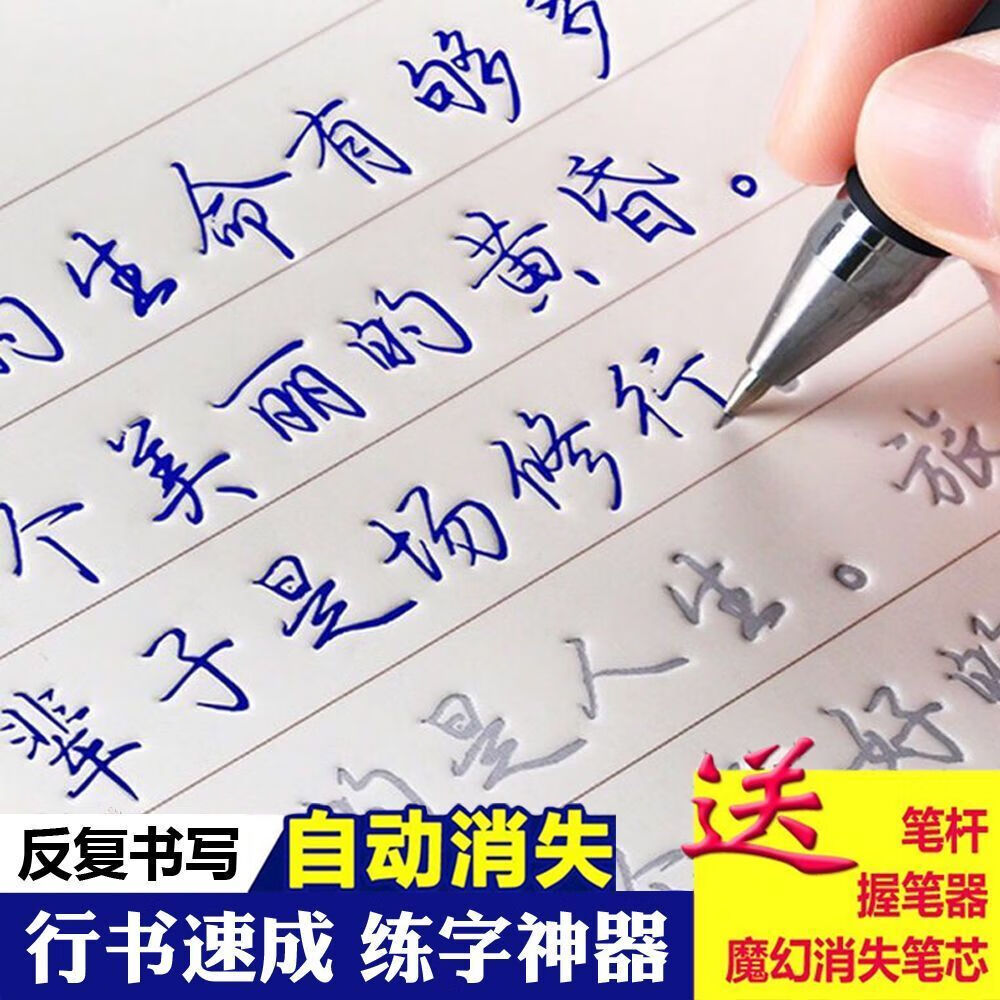 的生命有够多
个美丽的黄昏。
辈子是场修行
的是人生。
旅
好的
反复书写
自动消失
行书速成 练字神器
送
笔杆
握笔器
魔幻消失笔芯